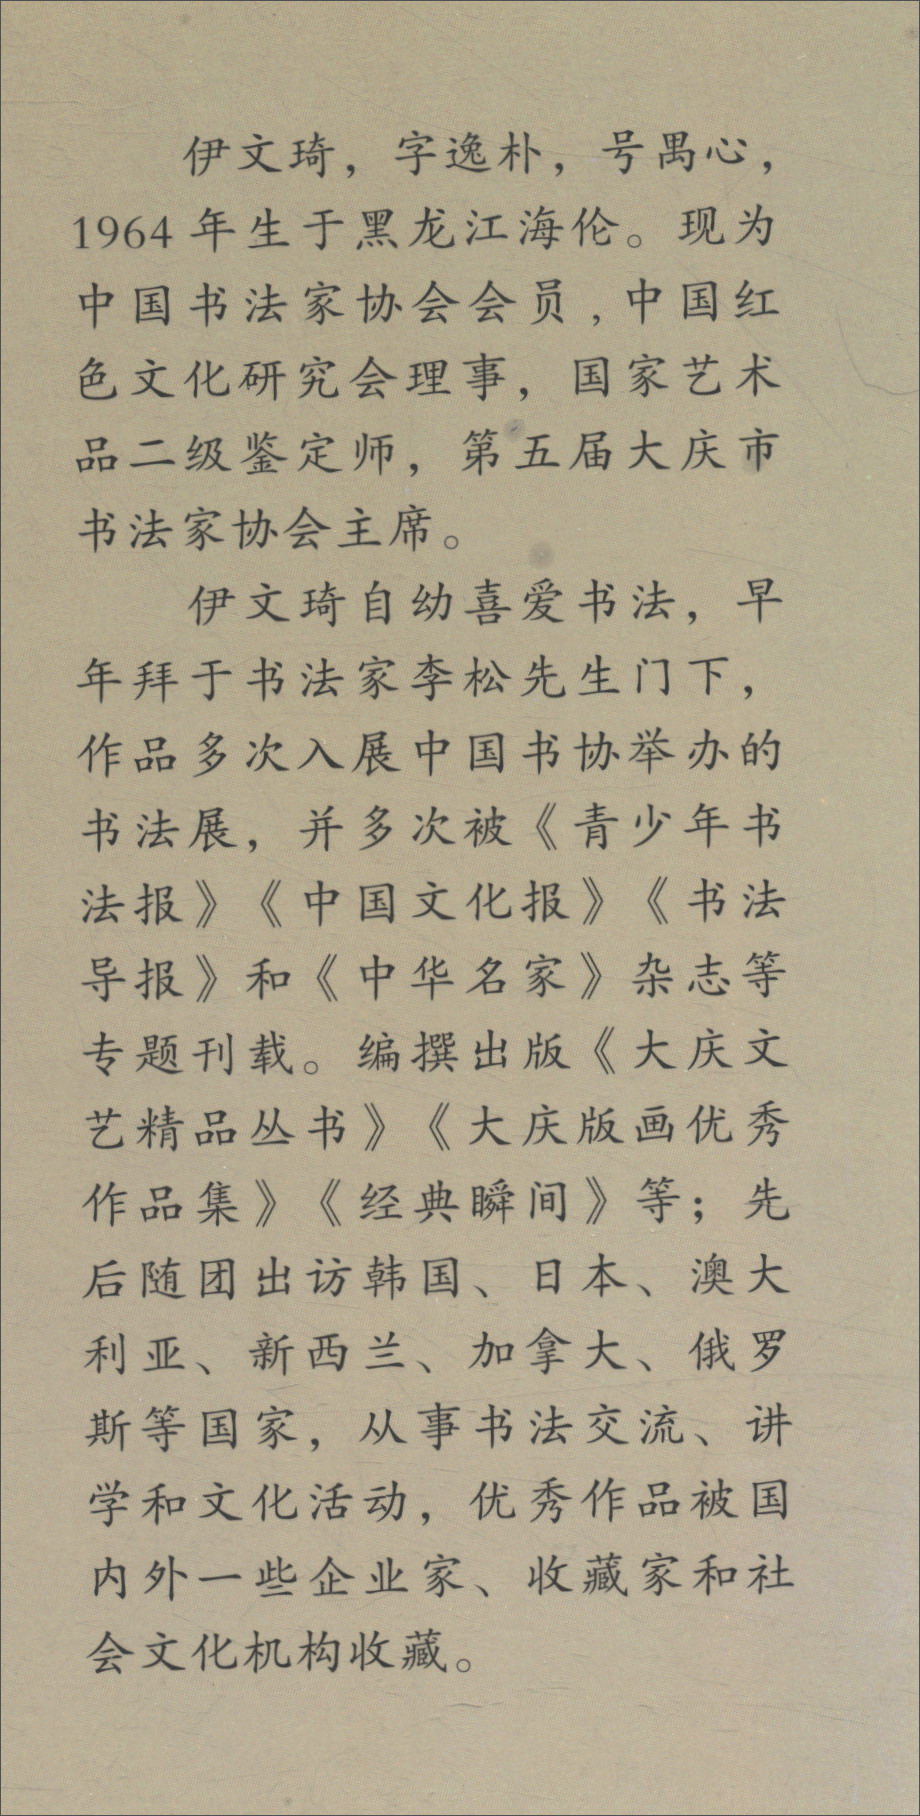 伊文琦，字逸朴，号禺心，
1964年生于黑龙江海伦。现为
中国书法家协会会员,中国红
色文化研究会理事，国家艺术
品二级鉴定师，第五届大庆市
书法家协会主席。
伊文琦自幼喜爱书法，早
年拜于书法家李松先生门下，
作品多次入展中国书协举办的
书法展，并多次被《青少年书
法报》《中国文化报》《书法
导报》和《中华名家》杂志等
专题刊载。编撰出版《大庆文
艺精品丛书》《大庆版画优秀
作品集》《经典瞬间》等；先
后随团出访韩国、日本、澳大
利亚、新西兰、加拿大、俄罗
斯等国家，从事书法交流、讲
学和文化活动，优秀作品被国
内外一些企业家、收藏家和社
会文化机构收藏。